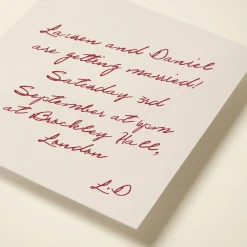 Lauren and Daniel
are getting married!
Saturday 3rd
September at 6pm
at Brockley Hall,
London
L+D